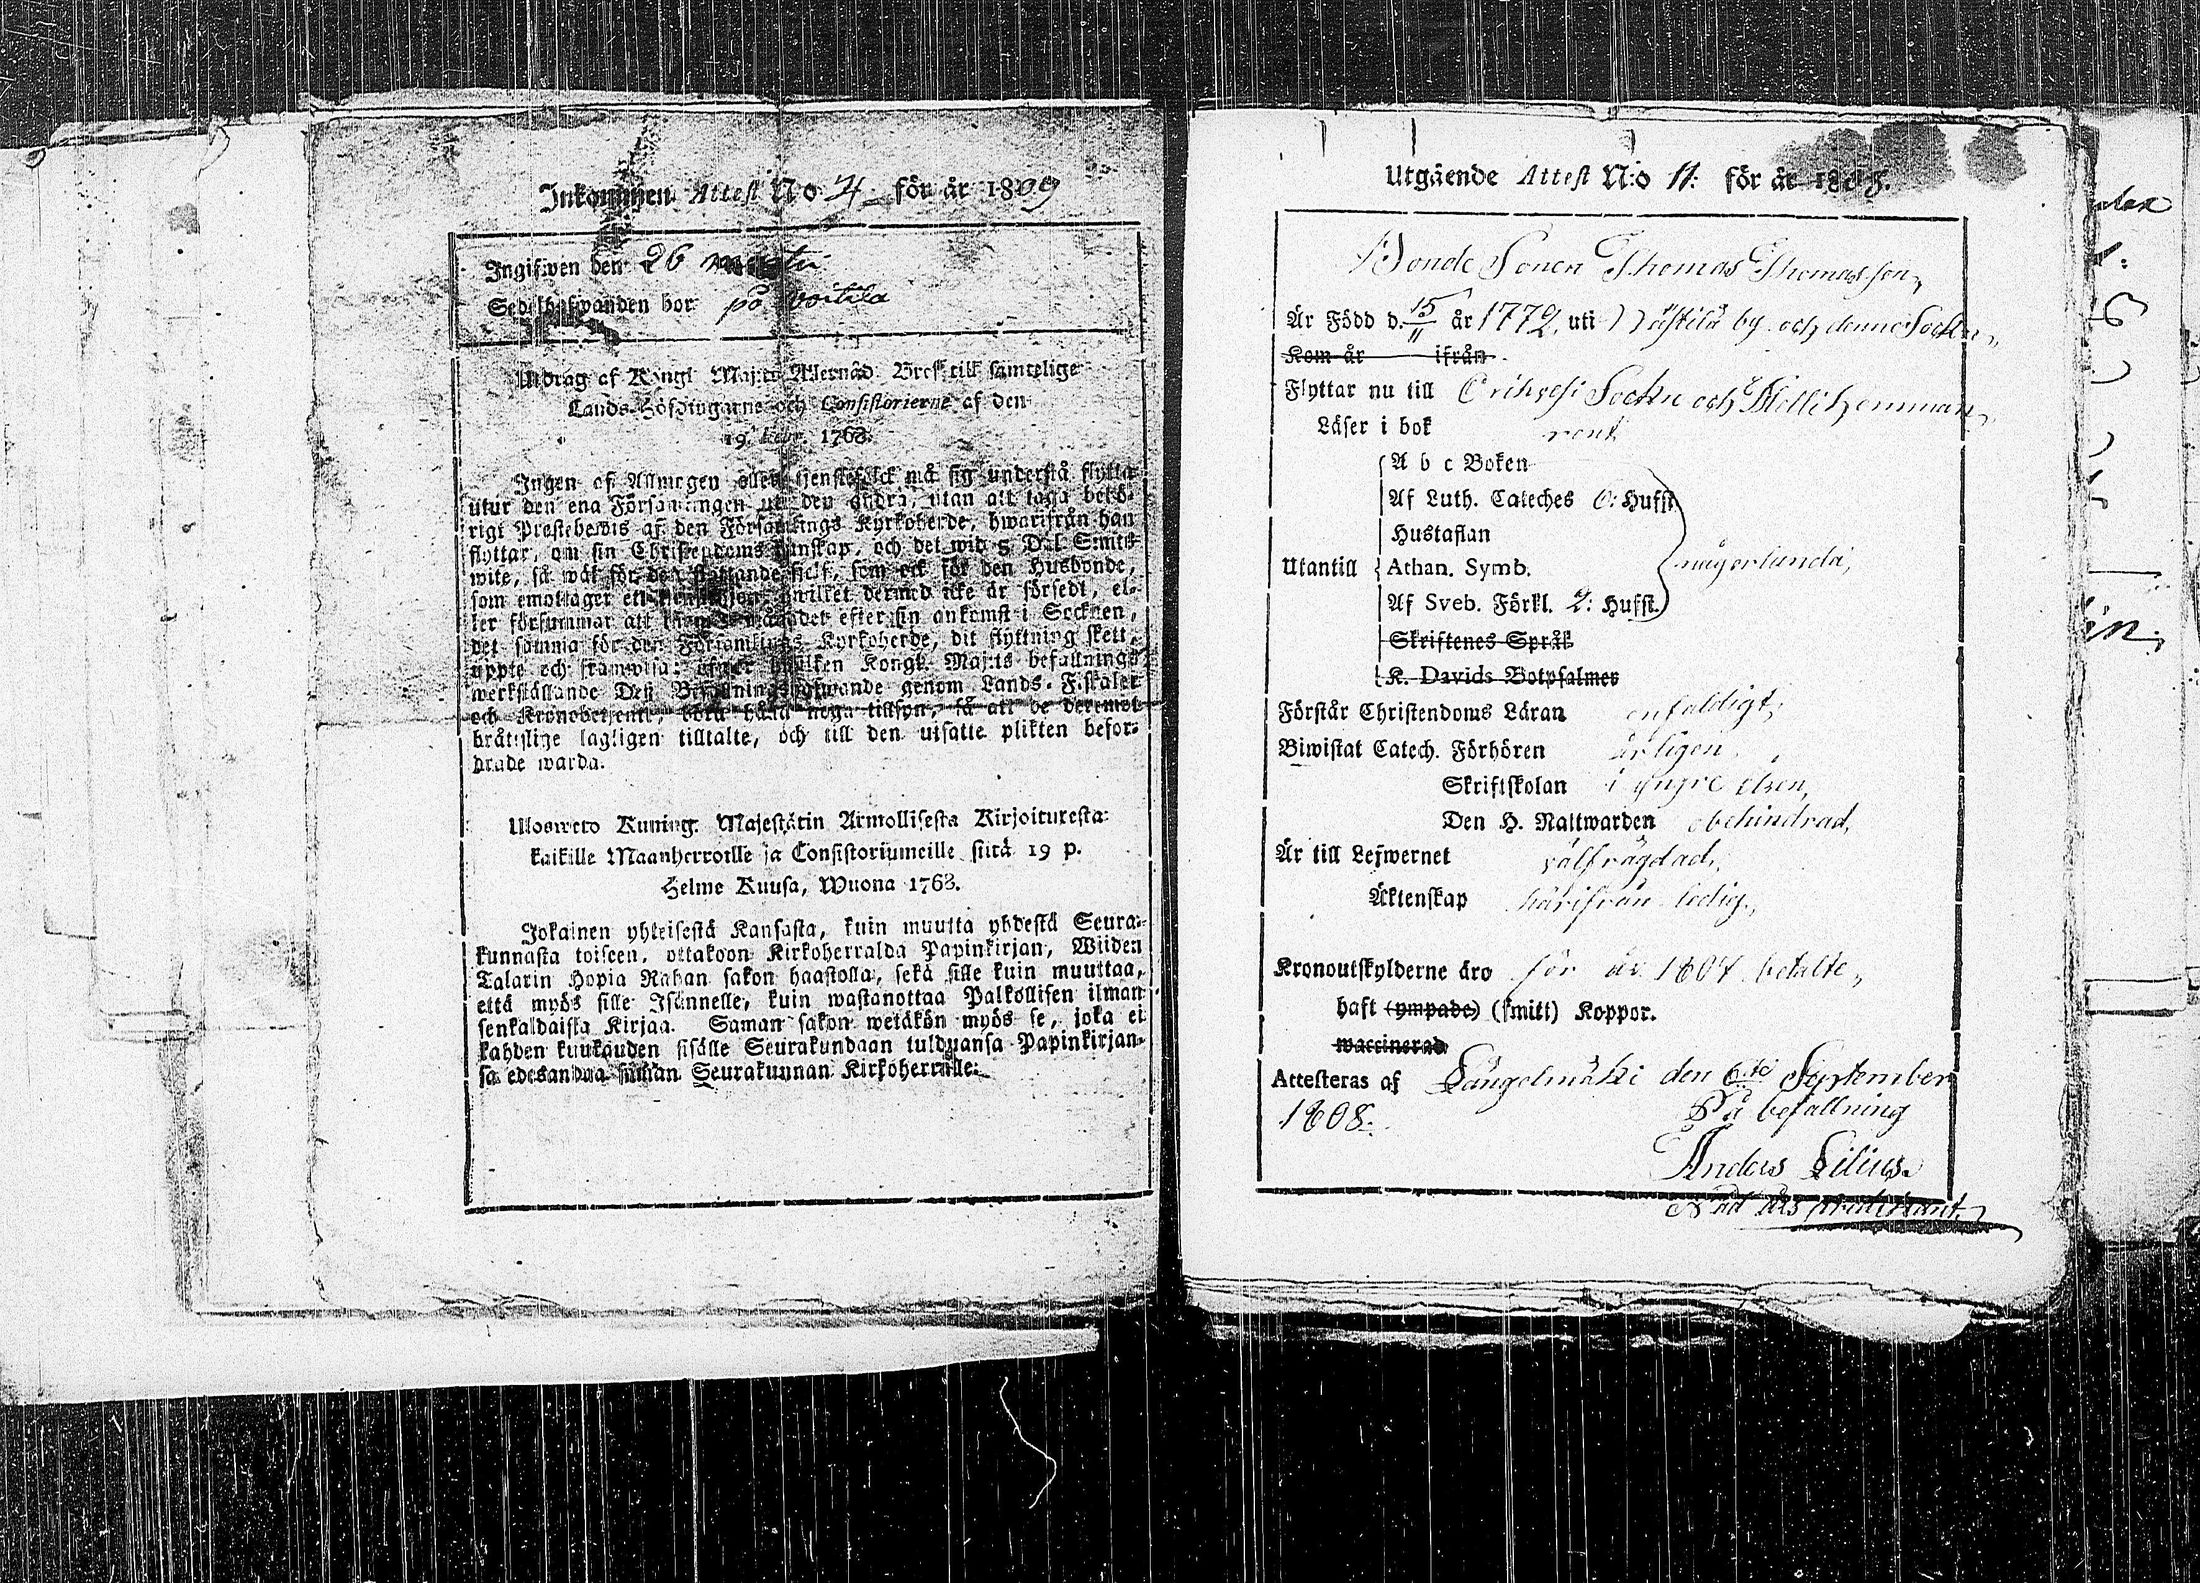 Inkommen Attest No 4 för år 1809
Ingifwen den 26
Sedelhafwanden bor på Voitila
Utdrag af Kongl. Maj:ts Allernåd. Bref till samtelige
Lands-Höfdingarne och Consistorierne af den
19 Febr. 1768.
Ingen af Allmogen eller tjenstefolck må sig understå flytta
utur den ena Församlingen uti den andra, utan att taga behö-
rigt Prestebewis af den Församlings Kyrkoherde, hwarifrån han
flyttar, om sin Christendoms kunskap, och det wid 5 Dal. S:mts
wite, så wäl för den flyttande sjelf, som ock för den Husbonde,
som emottager ett tjenstehjon, hwilket dermed icke är försedt, el-
ler försummar att inom månadet efter sin ankomst i Socknen,
det samma för den Församlings Kyrkoherde, dit flyttning skett,
uppte och framwisa: öfwer hwilken Kongl. Maj:ts befallnings
werkställande Dess Befallningshafwande genom Lands-Fiskaler
och Kronobetjente, böra hafwa noga tillsyn, så att de deremot
bråttslige lagligen tilltalte, och till den utsatte plikten befor-
drade warda.
Uloswetö Kuning. Majestätin Armollisesta Kirjoituxesta
kaikille Maanherroille ja Consistoriumeille siitä 19 p.
Helme Kuusa, Wuona 1768.
Jokainen yhteisestä Kansasta, kuin muutta yhdestä Seura-
kunnasta toiseen, ottakoon Kirkoherralda Papinkirjan, Wiiden
Talarin Hopia Rahan sakon haastolla, sekä sille kuin muuttaa,
että myös sille Isännelle, kuin wastanottaa Palkollisen ilman
senkaldaista Kirjaa. Saman sakon wetäkön myös se, joka ei
kahden kuukauden sisälle Seurakundaan tulduansa Papinkirjan-
sa edesanna saman Seurakunnan Kirkoherralle.
Utgående Attest N:o 11: för år 1808.
Bonde Sonen Thomas Thomasson,
Är Född d. 15/11 år 1772, uti Västilä by och denne Sockn,
Kom år ifrån
Flyttar nu till Orihvesi Sockn och hemman,
Läser i bok rent
A b c Boken
Af Luth. Cateches 6: Hufst.
Hustaflan
Utantill Athan. Symb. någorlunda,
Af Sveb. Förkl. 2: Hufst.
Skriftenes Språk
K. Davids Botpsalmer
Förstår Christendoms Läran enfaldigt,
Biwistat Catech. Förhören årligen
Skriftskolan i yngre åren,
Den H. Nattwarden obehindrad,
Är till Lefwernet välfrägdad,
Äktenskap härifrån ledig,
Kronoutskylderne äro för år 1807 betalte,
haft (ympade) (smitt) Koppor.
waccinerad
Attesteras af Längelmäki den 6:te September
1808. På befallning
Anders Lilius.